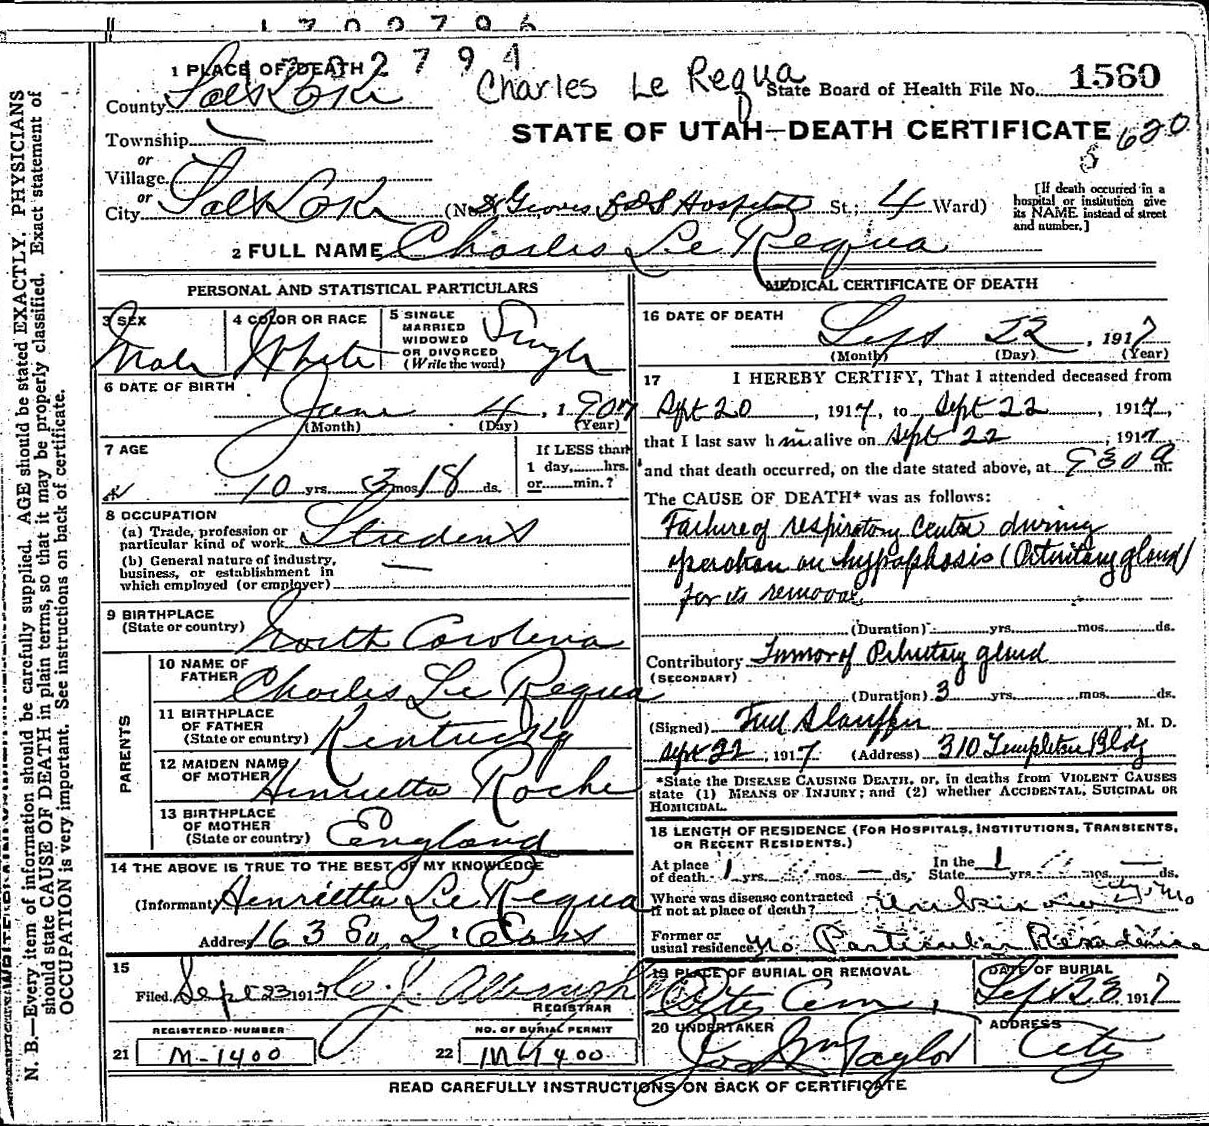 1 PLACE OF DEATH 2 7 9 4
Charles Le Requa
State Board of Health File No. 1560
County Salt Lake
STATE OF UTAH—DEATH CERTIFICATE
620
Township
or
Village
or
City Salt Lake (No. Groves LDS Hospital St.; 4 Ward)
[If death occurred in a hospital or institution give its NAME instead of street and number.]
2 FULL NAME Charles Le Requa
PERSONAL AND STATISTICAL PARTICULARS
3 SEX Male
4 COLOR OR RACE White
5 SINGLE MARRIED WIDOWED OR DIVORCED (Write the word) Single
6 DATE OF BIRTH
June 4, 1907
(Month) (Day) (Year)
7 AGE
10 yrs. 3 mos. 18 ds.
If LESS than 1 day, hrs. or min.?
8 OCCUPATION
(a) Trade, profession or particular kind of work Student
(b) General nature of industry, business, or establishment in which employed (or employer) —
9 BIRTHPLACE (State or country) North Carolina
PARENTS
10 NAME OF FATHER Charles Le Requa
11 BIRTHPLACE OF FATHER (State or country) Kentucky
12 MAIDEN NAME OF MOTHER Henrietta Roche
13 BIRTHPLACE OF MOTHER (State or country) England
14 THE ABOVE IS TRUE TO THE BEST OF MY KNOWLEDGE
(Informant) Henrietta Le Requa
Address 163 So
15
Filed Sept 23 1917
REGISTRAR
REGISTERED NUMBER
21 M-1400
NO. OF BURIAL PERMIT
22 M-1400
MEDICAL CERTIFICATE OF DEATH
16 DATE OF DEATH
Sept 22, 1917
(Month) (Day) (Year)
17 I HEREBY CERTIFY, That I attended deceased from
Sept 20, 1917, to Sept 22, 1917,
that I last saw him alive on Sept 22, 1917
and that death occurred, on the date stated above, at 930 a m.
The CAUSE OF DEATH* was as follows:
Failure of respiratory Center during
operation on hypophosis (Pituitary gland)
for its removal.
(Duration) yrs. mos. ds.
Contributory Tumor of Pituitary gland
(SECONDARY)
(Duration) 3 yrs. mos. ds.
(Signed) Fred Stauffer, M. D.
Sept 22, 1917 (Address) 310 Templeton Bldg
*State the DISEASE CAUSING DEATH, or, in deaths from VIOLENT CAUSES
state (1) MEANS OF INJURY; and (2) whether ACCIDENTAL, SUICIDAL OR
HOMICIDAL.
18 LENGTH OF RESIDENCE (FOR HOSPITALS, INSTITUTIONS, TRANSIENTS,
OR RECENT RESIDENTS.)
At place of death 1 yrs. mos. — ds. In the State 1 yrs. mos. — ds.
Where was disease contracted if not at place of death? unknown
Former or usual residence No Particular Residence
19 PLACE OF BURIAL OR REMOVAL City Cem,
DATE OF BURIAL Sept 23 1917
20 UNDERTAKER Jos Wm Taylor
ADDRESS City
READ CAREFULLY INSTRUCTIONS ON BACK OF CERTIFICATE
N. B.—Every item of information should be carefully supplied. AGE should be stated EXACTLY. PHYSICIANS
should state CAUSE OF DEATH in plain terms, so that it may be properly classified. Exact statement of
OCCUPATION is very important. See instructions on back of certificate.